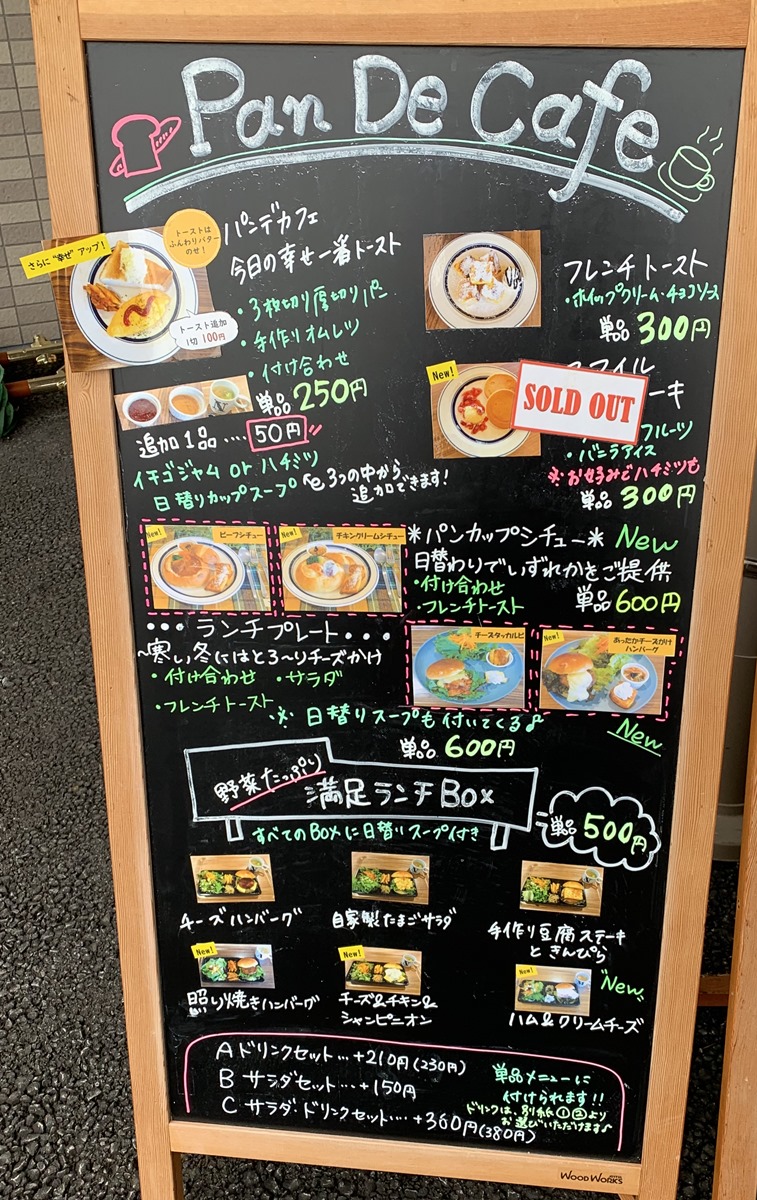 Pan De Cafe
さらに"幸せ"アップ!
トーストは
ふんわりバター
のせ!
トースト追加
1切 100円
パンデカフェ
今日の幸せ一番トースト
・3枚切り厚切りパン
・手作りオムレツ
・付け合わせ
単品 250円
追加1品....50円
イチゴジャム or ハチミツ
日替りカップスープ
3つの中から
追加できます!
フレンチトースト
・ホイップクリーム・チョコソース
単品 300円
New!
SOLD OUT
フルーツ
・バニラアイス
※お好みでハチミツも
単品 300円
New!
ビーフシチュー
New!
チキンクリームシチュー
*パンカップシチュー* New
日替わりでいずれかをご提供
・付け合わせ
・フレンチトースト
単品 600円
・・・ランチプレート・・・
~寒い冬にはとろ~りチーズかけ
・付け合わせ ・サラダ
・フレンチトースト
チーズタッカルビ
New!
あったかチーズがけ
ハンバーグ
※日替りスープも付いてくる♪
New
単品 600円
野菜たっぷり
満足ランチBox
すべてのBoxに日替りスープ付き
単品 500円
チーズハンバーグ
自家製たまごサラダ
手作り豆腐ステーキ
と きんぴら
New!
照り焼きハンバーグ
New!
チーズ&チキン&
シャンピニオン
New!
New
ハム&クリームチーズ
A ドリンクセット...+210円(230円)
B サラダセット....+150円
C サラダドリンクセット....+360円(380円)
単品メニューに
付けられます!!
ドリンクは、別紙①②より
お選びいただけます♪
WOOD WORKS